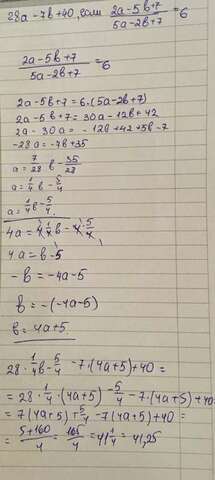 28a - 7b + 40, если (2a - 5b + 7)/(5a - 2b + 7) = 6
(2a - 5b + 7)/(5a - 2b + 7) = 6
2a - 5b + 7 = 6 · (5a - 2b + 7)
2a - 5b + 7 = 30a - 12b + 42
2a - 30a = - 12b + 42 + 5b - 7
-28a = -7b + 35
a = 7/28 b - 35/28
a = 1/4 b - 5/4
a = 1/4 b - 5/4
4a = 4 1/4 b - 4 5/4
4a = b - 5
-b = -4a - 5
b = -(-4a - 5)
b = 4a + 5
28 · 1/4 b - 5/4 - 7 · (4a + 5) + 40 =
= 28 · 1/4 · (4a + 5) - 5/4 - 7 · (4a + 5) + 40
= 7(4a + 5) + 5/4 - 7(4a + 5) + 40 =
= (5 + 160)/4 = 165/4 = 41 1/4 = 41,25